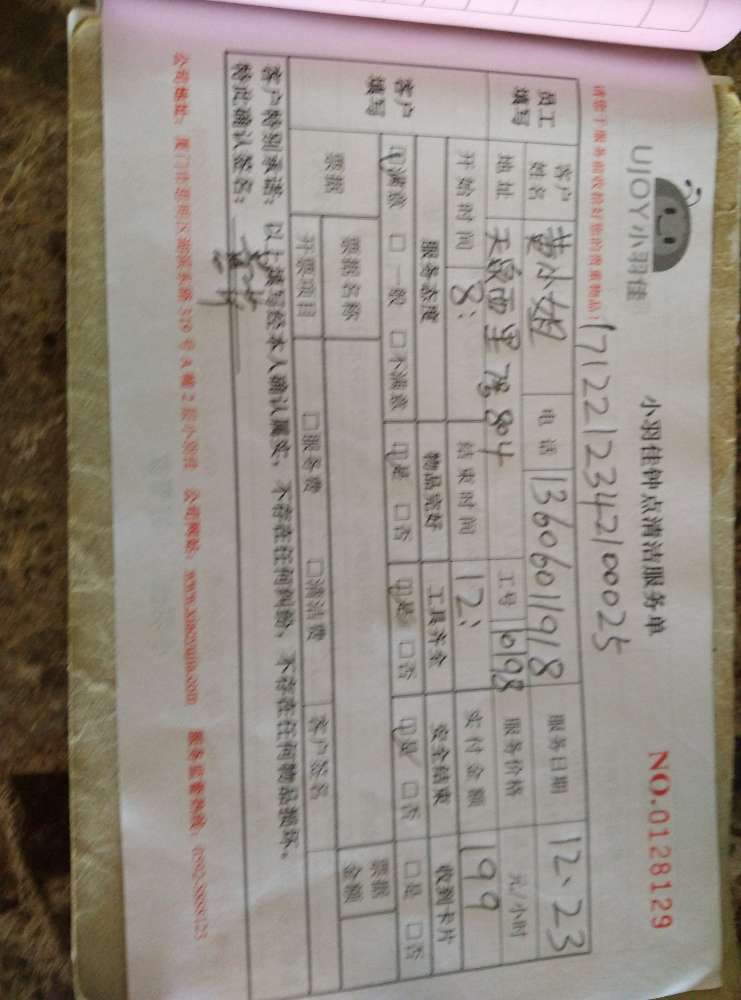 UJOY小羽佳
小羽佳钟点清洁服务单
NO.0128129
请您于服务前收拾好您的贵重物品!
1712212342100025
员工填写 客户姓名 黄小姐 电话 13606011918 服务日期 12、23
地址 804 工号 0198 服务价格 元/小时
客户填写 开始时间 8: 结束时间 12: 实付金额 199
服务态度 物品完好 工具齐全 安全结束 收到卡片
□满意 □一般 □不满意 □是 □否 □是 □否 □是 □否 □是 □否
票据 票据名称 票据金额
开票项目 □服务费 □清洁费 客户签名
客户特别承诺:以上填写经本人确认属实,不存在任何纠纷,不存在任何物品损坏。
特此确认签名:
公司地址: 号A幢2层小羽佳 公司网址:www.xiaoyujia.com 服务监督热线: